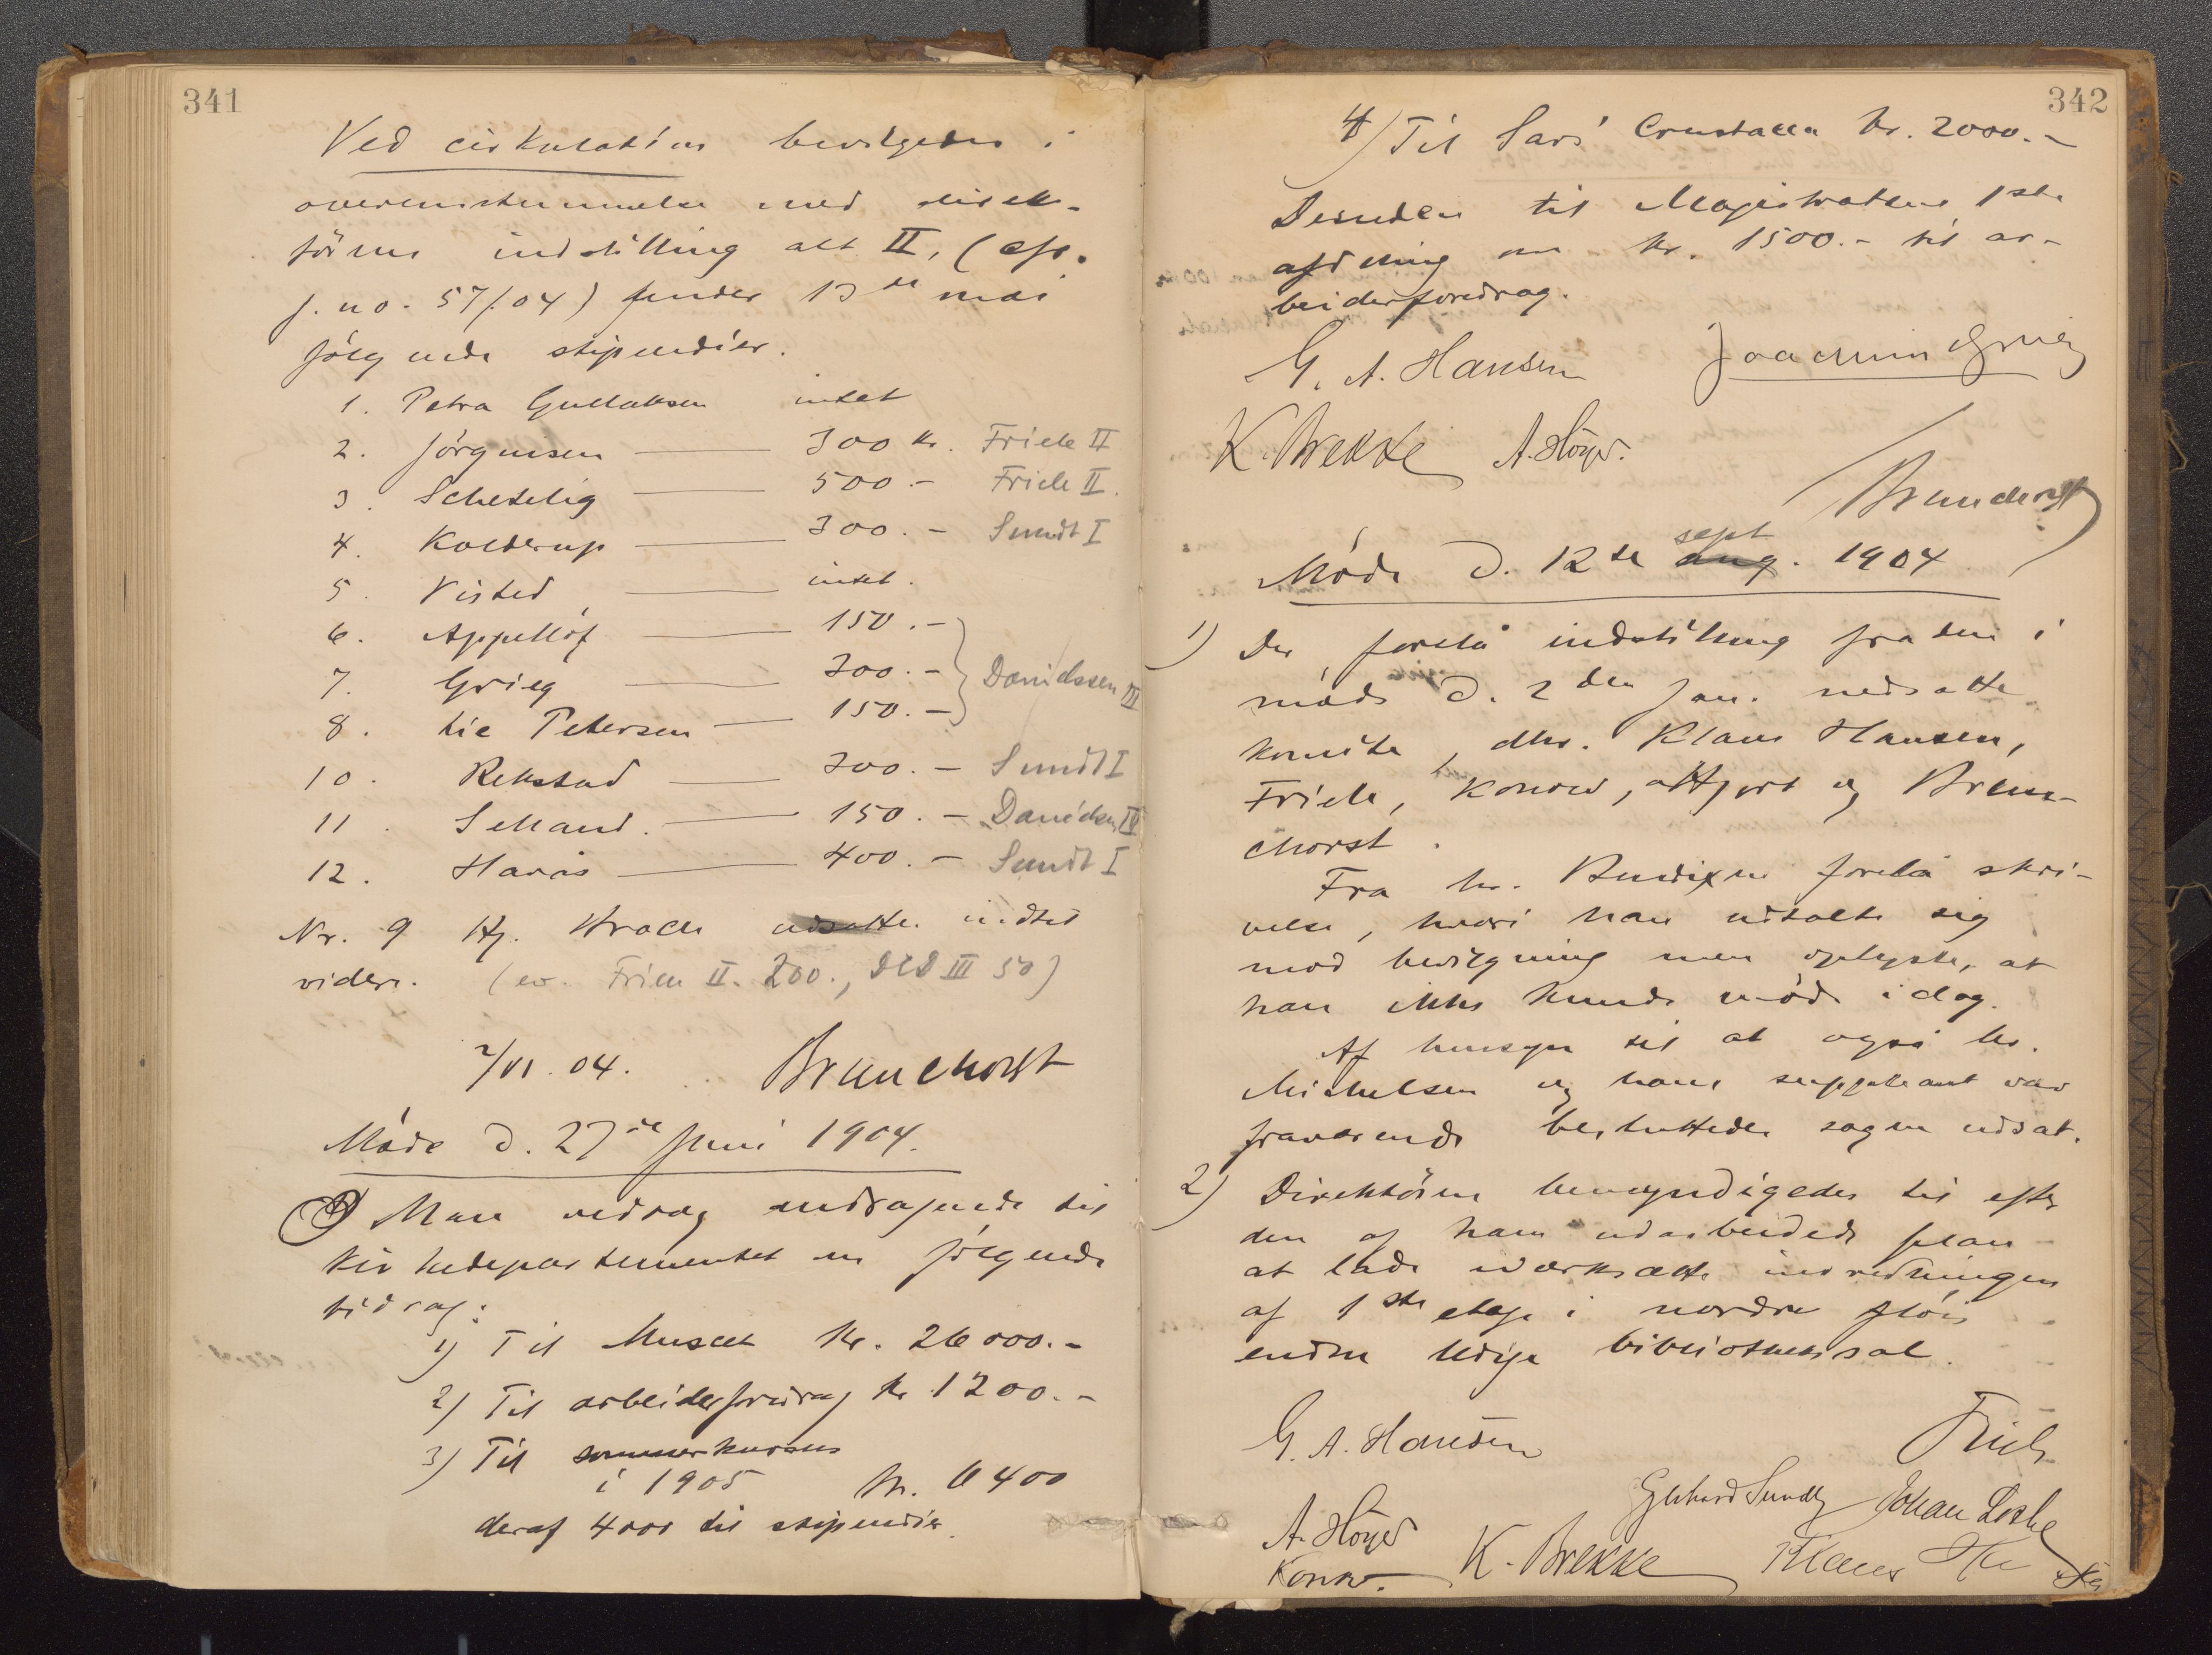 341
Ved cirkulation bevilgedes i
overensstemmelse med direk-
törens indstilling alt II, (cfr.
j. no. 57/04) under 13de mai
fölgende stipendier.
1. Petra Gullaksen intet
2. Jörgensen 300 kr. Friele II
3. Schetelig 500.- Friele II.
4. Kolderup 300.- Sundt I
5. Visted intet.
6. Appellöf 150.-
7. Grieg 300.- Danielssen III
8. Lie Petersen 150.-
10. Rekstad 300.- Sundt I
11. Selland. 150.- Danielsen III
12. Haras 400.- Sundt I
Nr. 9 Hj. Broch udsatte indtil
videre. (ev. Friele II. 200., DCD III 50)
2/VI.04. Brunchorst
Möde d. 27de Juni 1904.
Man vedtog andragende til
Kirkedepartementet om fölgende
bidrag:
1) Til Museet Kr. 26000.-
2) Til arbeiderforedrag Kr 1200.-
3) Til sommerkursus
i 1905 Kr. 6400
deraf 4000 til stipendier.
342
4) Til Sars' Crustacea kr. 2000.-
Desuden til Magistratens 1ste
afdeling om kr. 1500.- til ar-
beiderforedrag.
G. A. Hansen Joachim Grieg
K. Brekke A. Höyer.
Brunchorst
sept
Möde d. 12te aug. 1904
1) Der forelå indstilling fra den i
möde d. 2den Jan. nedsatte
komite, dhr. Klaus Hansen,
Friele, Konow, Hjort og Brun-
chorst.
Fra hr. Bendixen forelå skri-
velse, hvori han udtalte sig
mod bevilgning men oplyste, at
han ikke kunde möde idag.
Af hensyn til at også hr.
Michelsen og hans suppleant var
fraværende besluttedes sagen udsat.
2) Direktören bemyndigedes til efter
den af ham udarbeidede plan
at lade iværksætte indredningen
af 1ste etage i nordre flöi
endnu ledige bibliotheksal.
G. A. Hansen Friele
Gerhard Sundt Johan Lothe
A. Höyer
Konow. K. Brekke Klaus